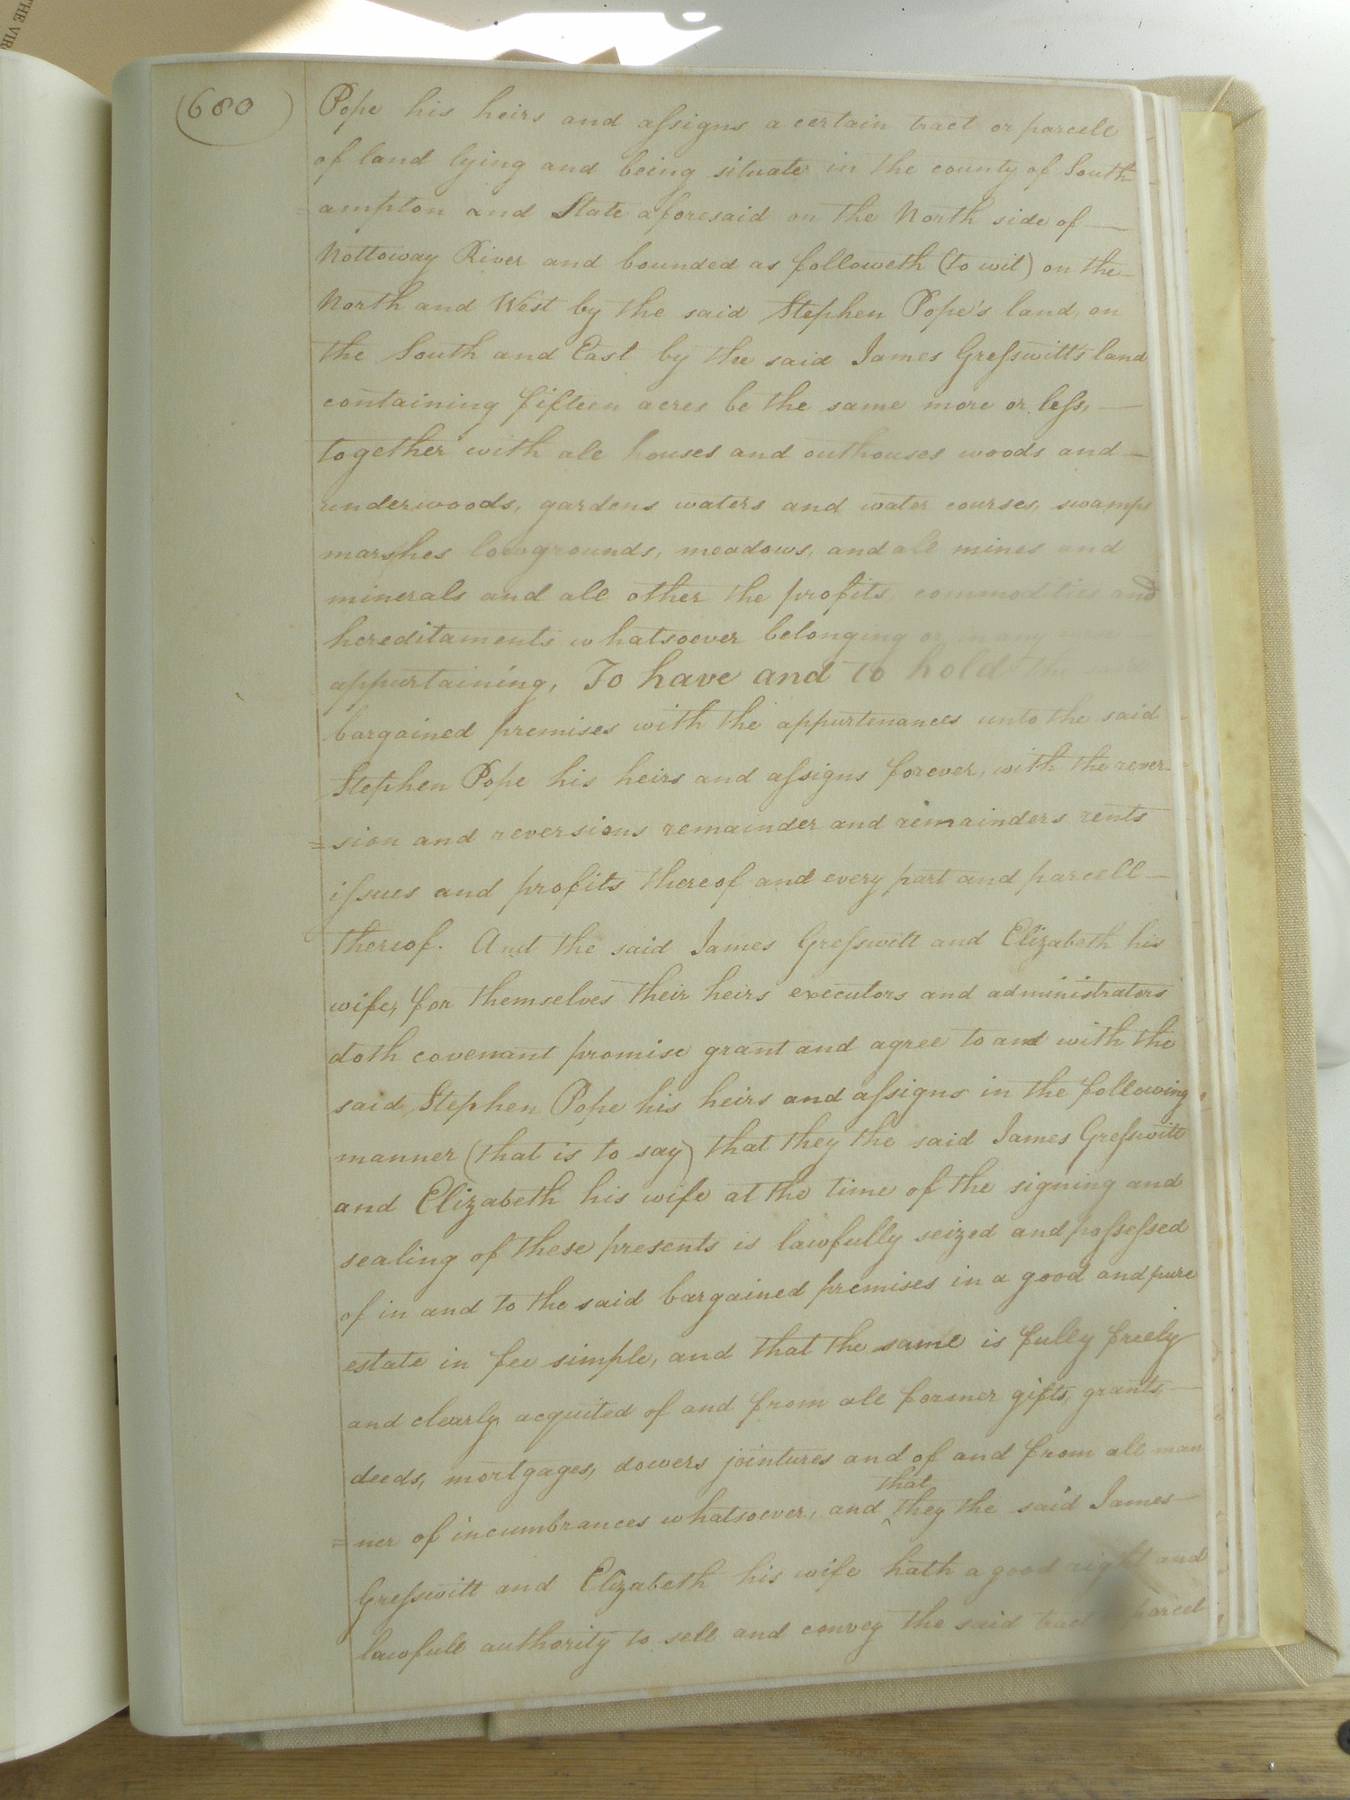 THE VIR
680
Pope his heirs and assigns a certain tract or parcell
of land lying and being situate in the county of South
ampton and State aforesaid on the North side of
Nottoway River and bounded as followeth (to wit) on the
North and West by the said Stephen Pope's land, on
the South and East by the said James Gresswitt's land
containing fifteen acres be the same more or less,
together with all houses and outhouses woods and
underwoods, gardens waters and water courses, swamps
marshes lowgrounds, meadows, and all mines and
minerals and all other the profits commodities and
hereditaments whatsoever belonging or in any
appurtaining, To have and to hold the
bargained premises with the appurtenances unto the said
Stephen Pope his heirs and assigns forever, with the rever-
=sion and reversions remainder and remainders rents
issues and profits thereof and every part and parcell
thereof. And the said James Gresswitt and Elizabeth his
wife, for themselves their heirs executors and administrators
doth covenant promise grant and agree to and with the
said Stephen Pope his heirs and assigns in the following
manner (that is to say) that they the said James Gresswitt
and Elizabeth his wife at the time of the signing and
sealing of these presents is lawfully seized and possessed
of in and to the said bargained premises in a good and pure
estate in fee simple, and that the same is fully freely
and clearly acquited of and from all former gifts, grants,
deeds, mortgages, dowers jointures and of and from all man
that
=ner of incumbrances whatsoever, and they the said James
Gresswitt and Elizabeth his wife hath a good right and
lawfull authority to sell and convey the said tract parcel